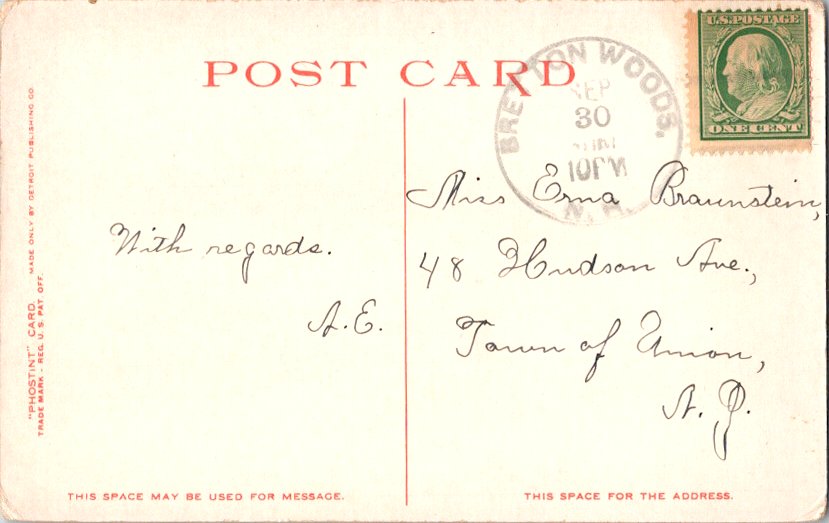 POST CARD
U.S. POSTAGE
ONE CENT
BRETTON WOODS,
SEP
30
10PM
N.H.
Miss Erna Braunstein,
48 Hudson Ave.,
Town of Union,
N. J.
With regards.
A.E.
"PHOSTINT" CARD MADE ONLY BY DETROIT PUBLISHING CO.
TRADE MARK - REG. U. S. PAT. OFF.
THIS SPACE MAY BE USED FOR MESSAGE.
THIS SPACE FOR THE ADDRESS.